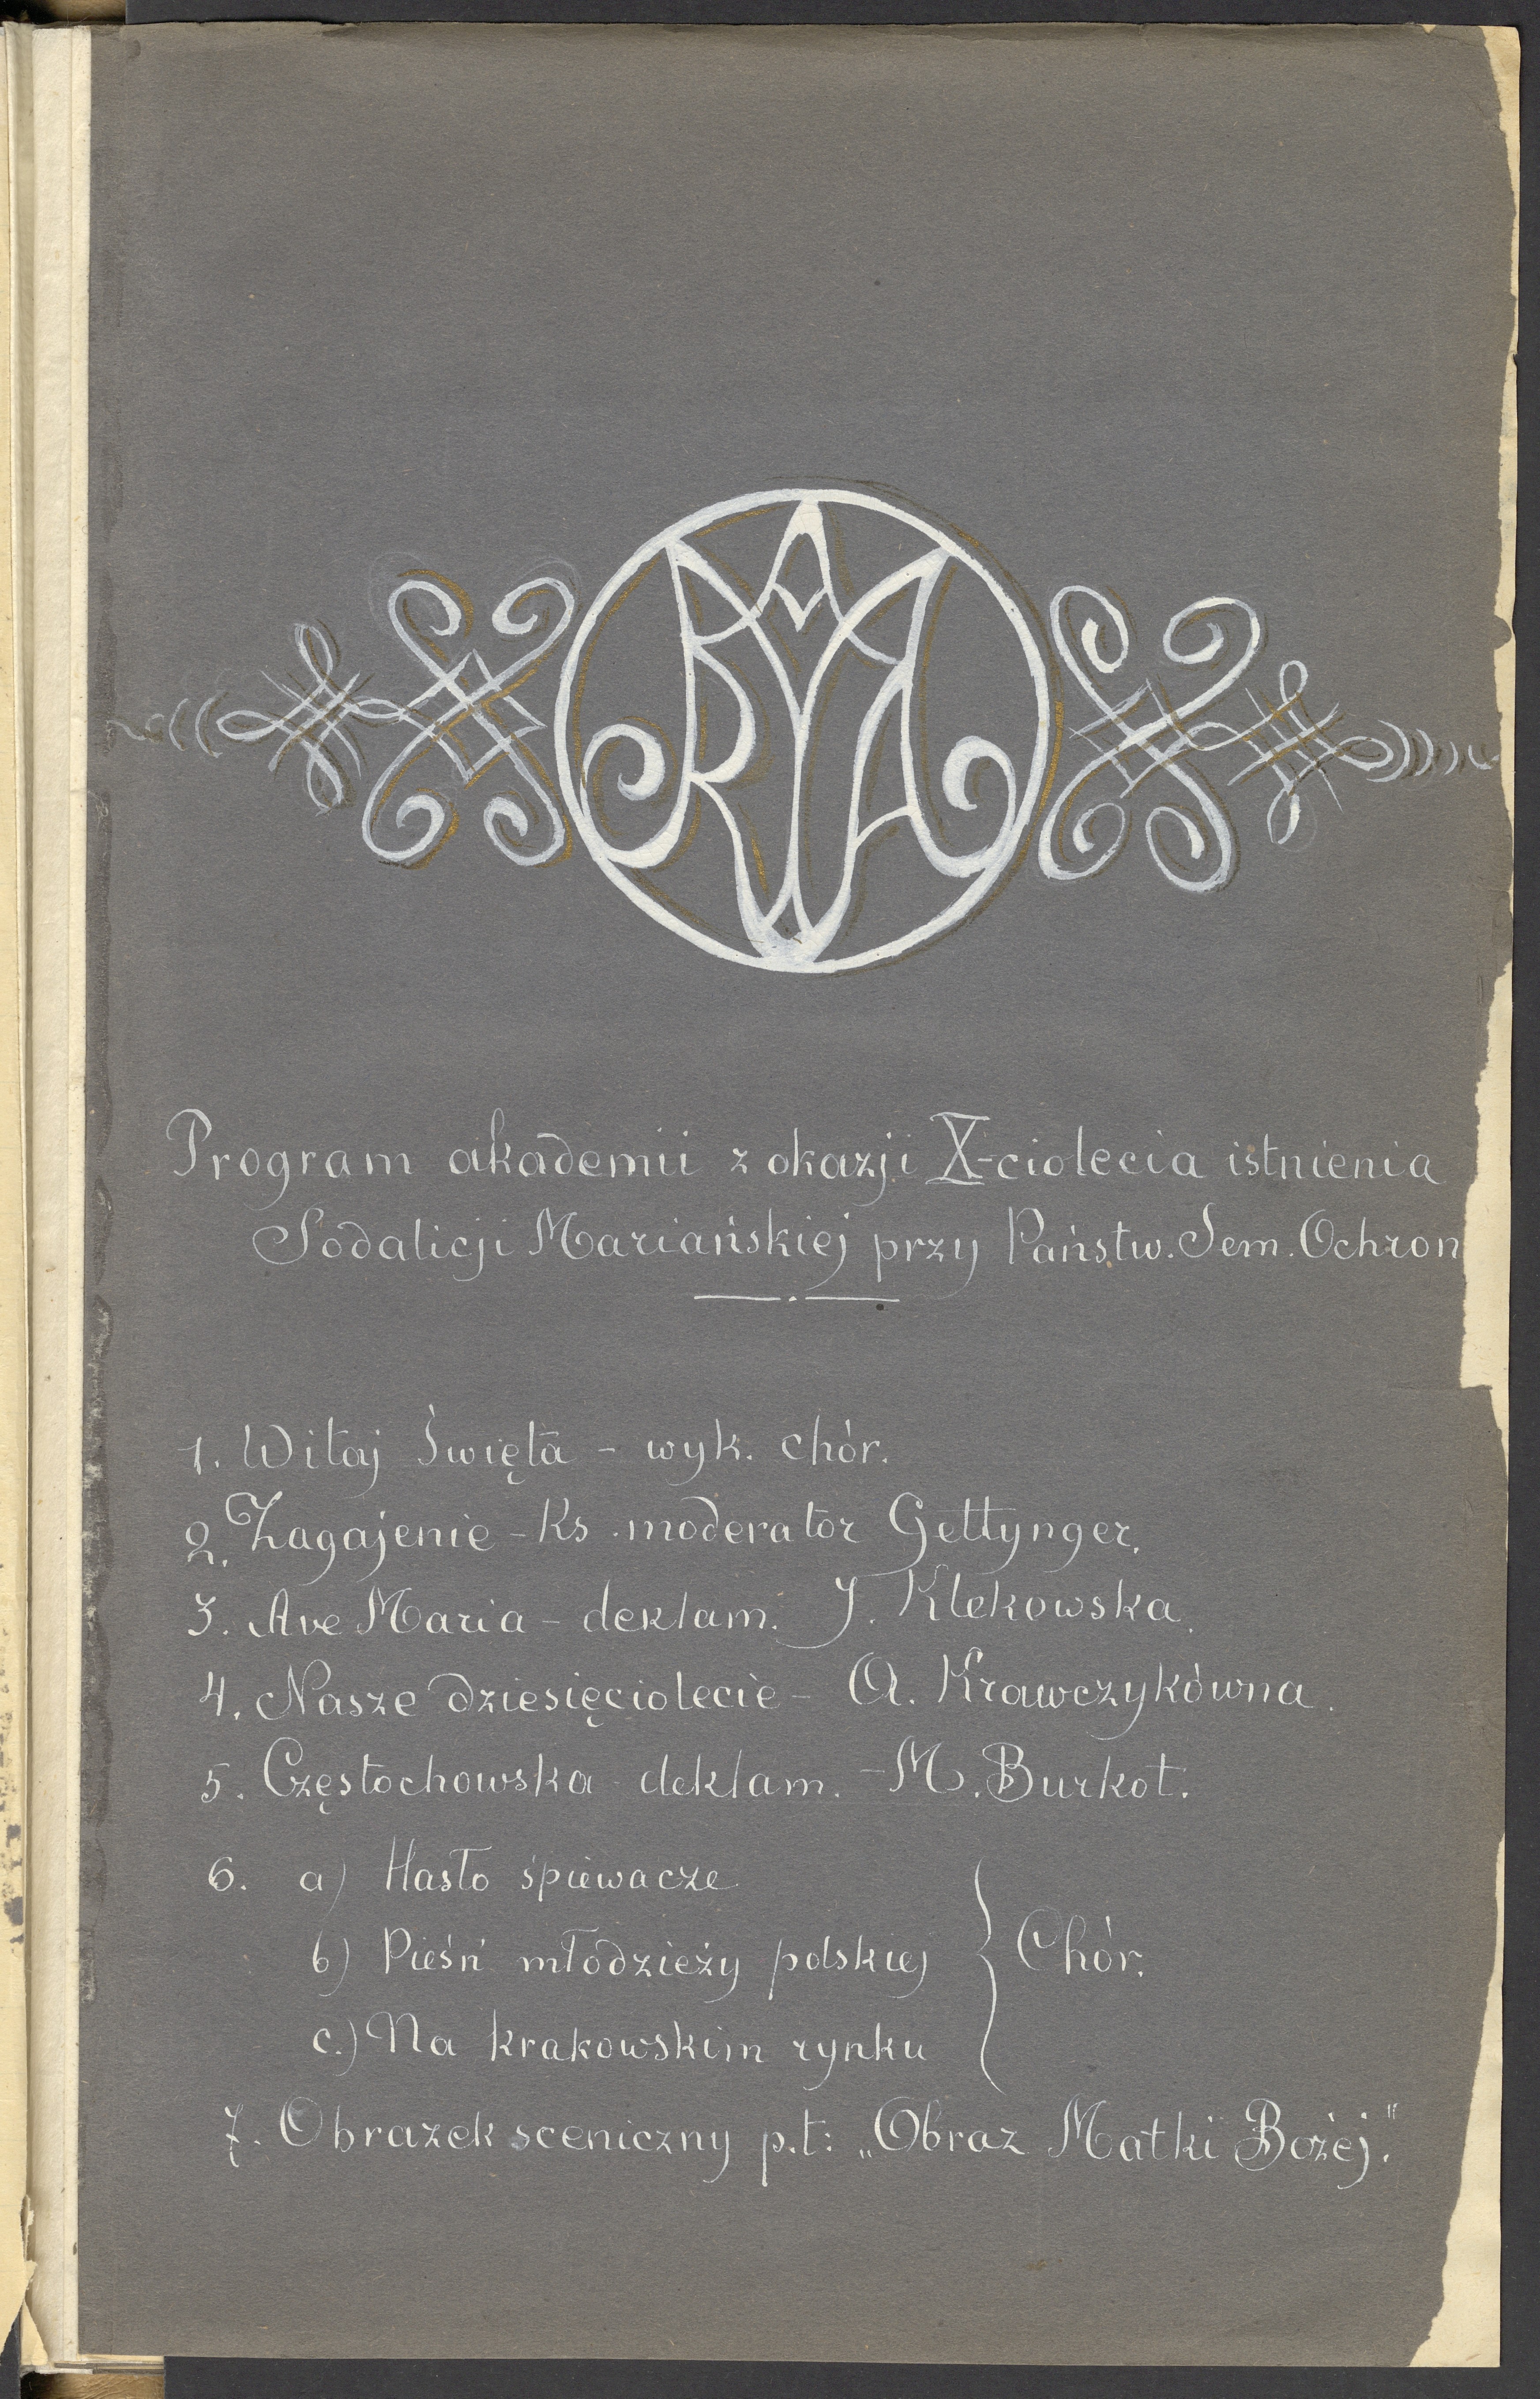 Program akademii z okazji X-ciolecia istnienia
Sodalicji Mariańskiej przy Państw. Sem. Ochron
1. Witaj Święta - wyk. chór.
2. Zagajenie - Ks. moderator Gettynger.
3. Ave Maria - deklam. J. Klekowska.
4. Nasze dziesięciolecie - A. Krawczykówna.
5. Częstochowska - deklam. - M. Burkot.
6. a) Hasło śpiewacze
b) Pieśń młodzieży polskiej } Chór.
c.) Na krakowskim rynku
7. Obrazek sceniczny p.t: „Obraz Matki Bożej."